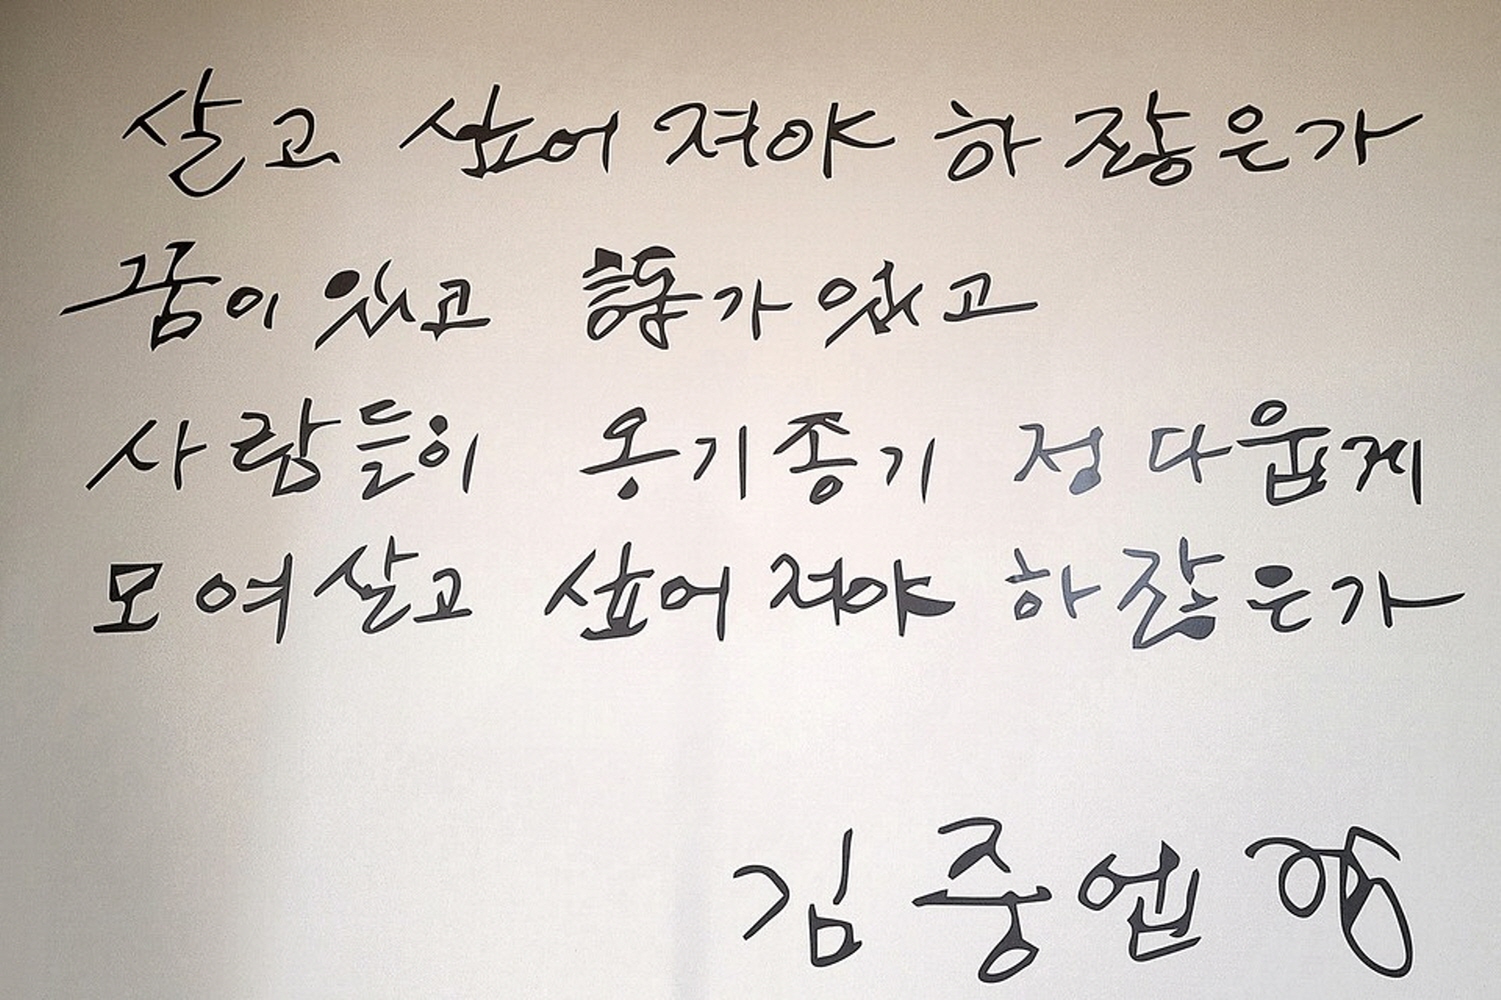 살고 싶어 져야 하 잖은가
꿈이 있고 있고
사람들이 옹기종기 정 다웁게
모여 살고 싶어 져야 하잖은가
김중업